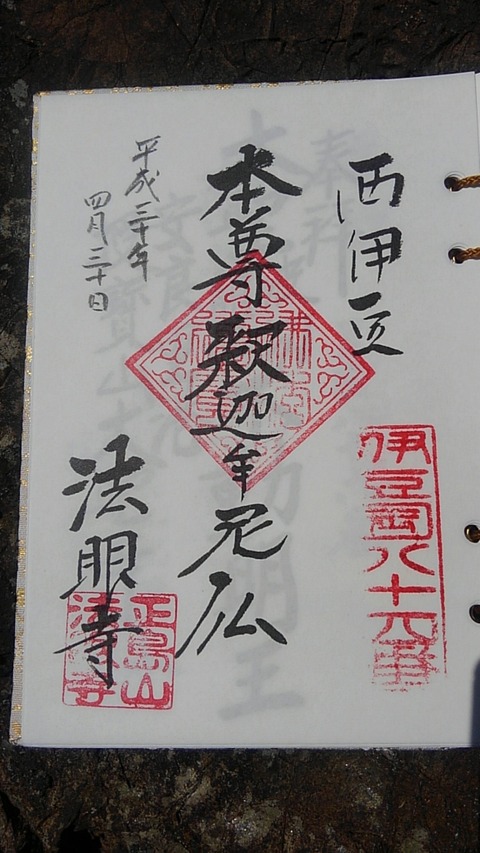 西伊豆
伊豆国八十六番
本尊釈迦牟尼仏
平成三十年
四月三十日
法眼寺
正島山
法眼寺